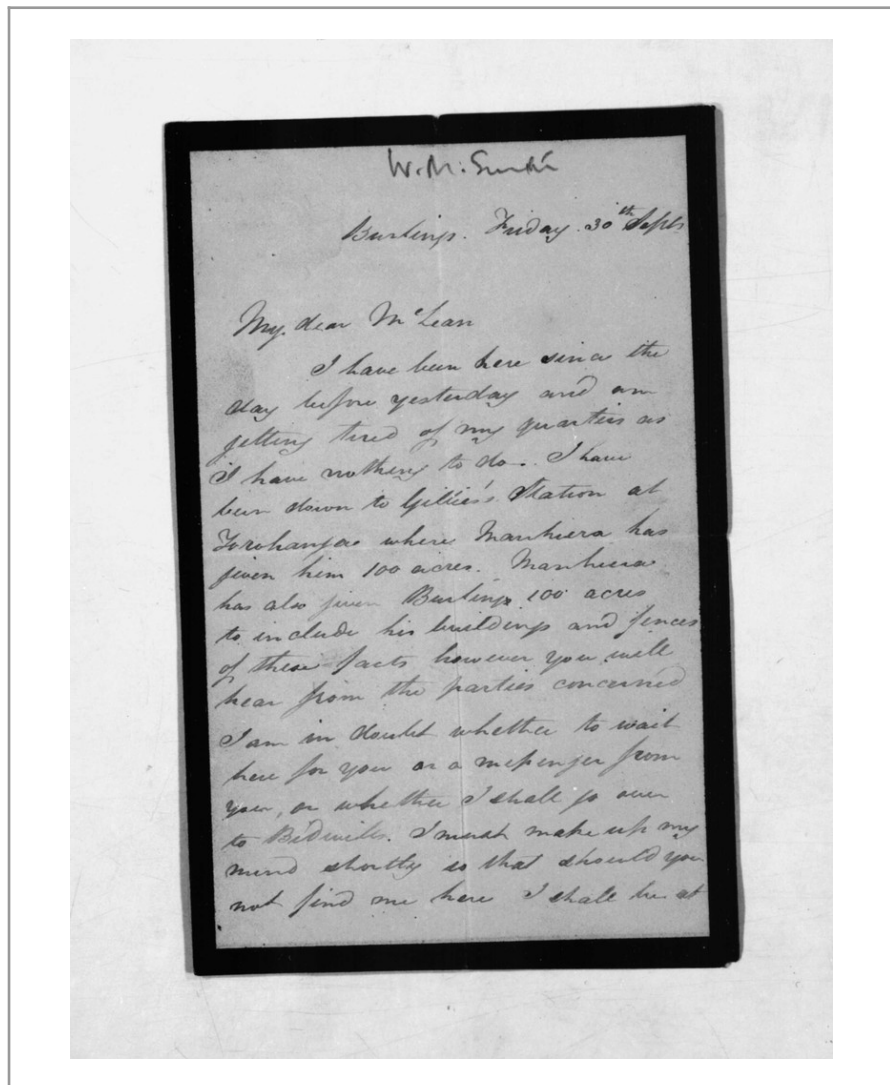 W. M. Smith
Burlings. Friday. 30th Septr
My dear McLean
I have been here since the
day before yesterday and am
getting tired of my quarters as
I have nothing to do. I have
been down to Gillies's Station at
where Manihera has
given him 100 acres. Manihera
has also given Burlings 100 acres
to include his buildings and fences
of these facts however you will
hear from the parties concerned
I am in doubt whether to wait
here for you or a messenger from
you, or whether I shall go over
to Bidwills. I must make up my
mind shortly so that should you
not find me here I shall be at